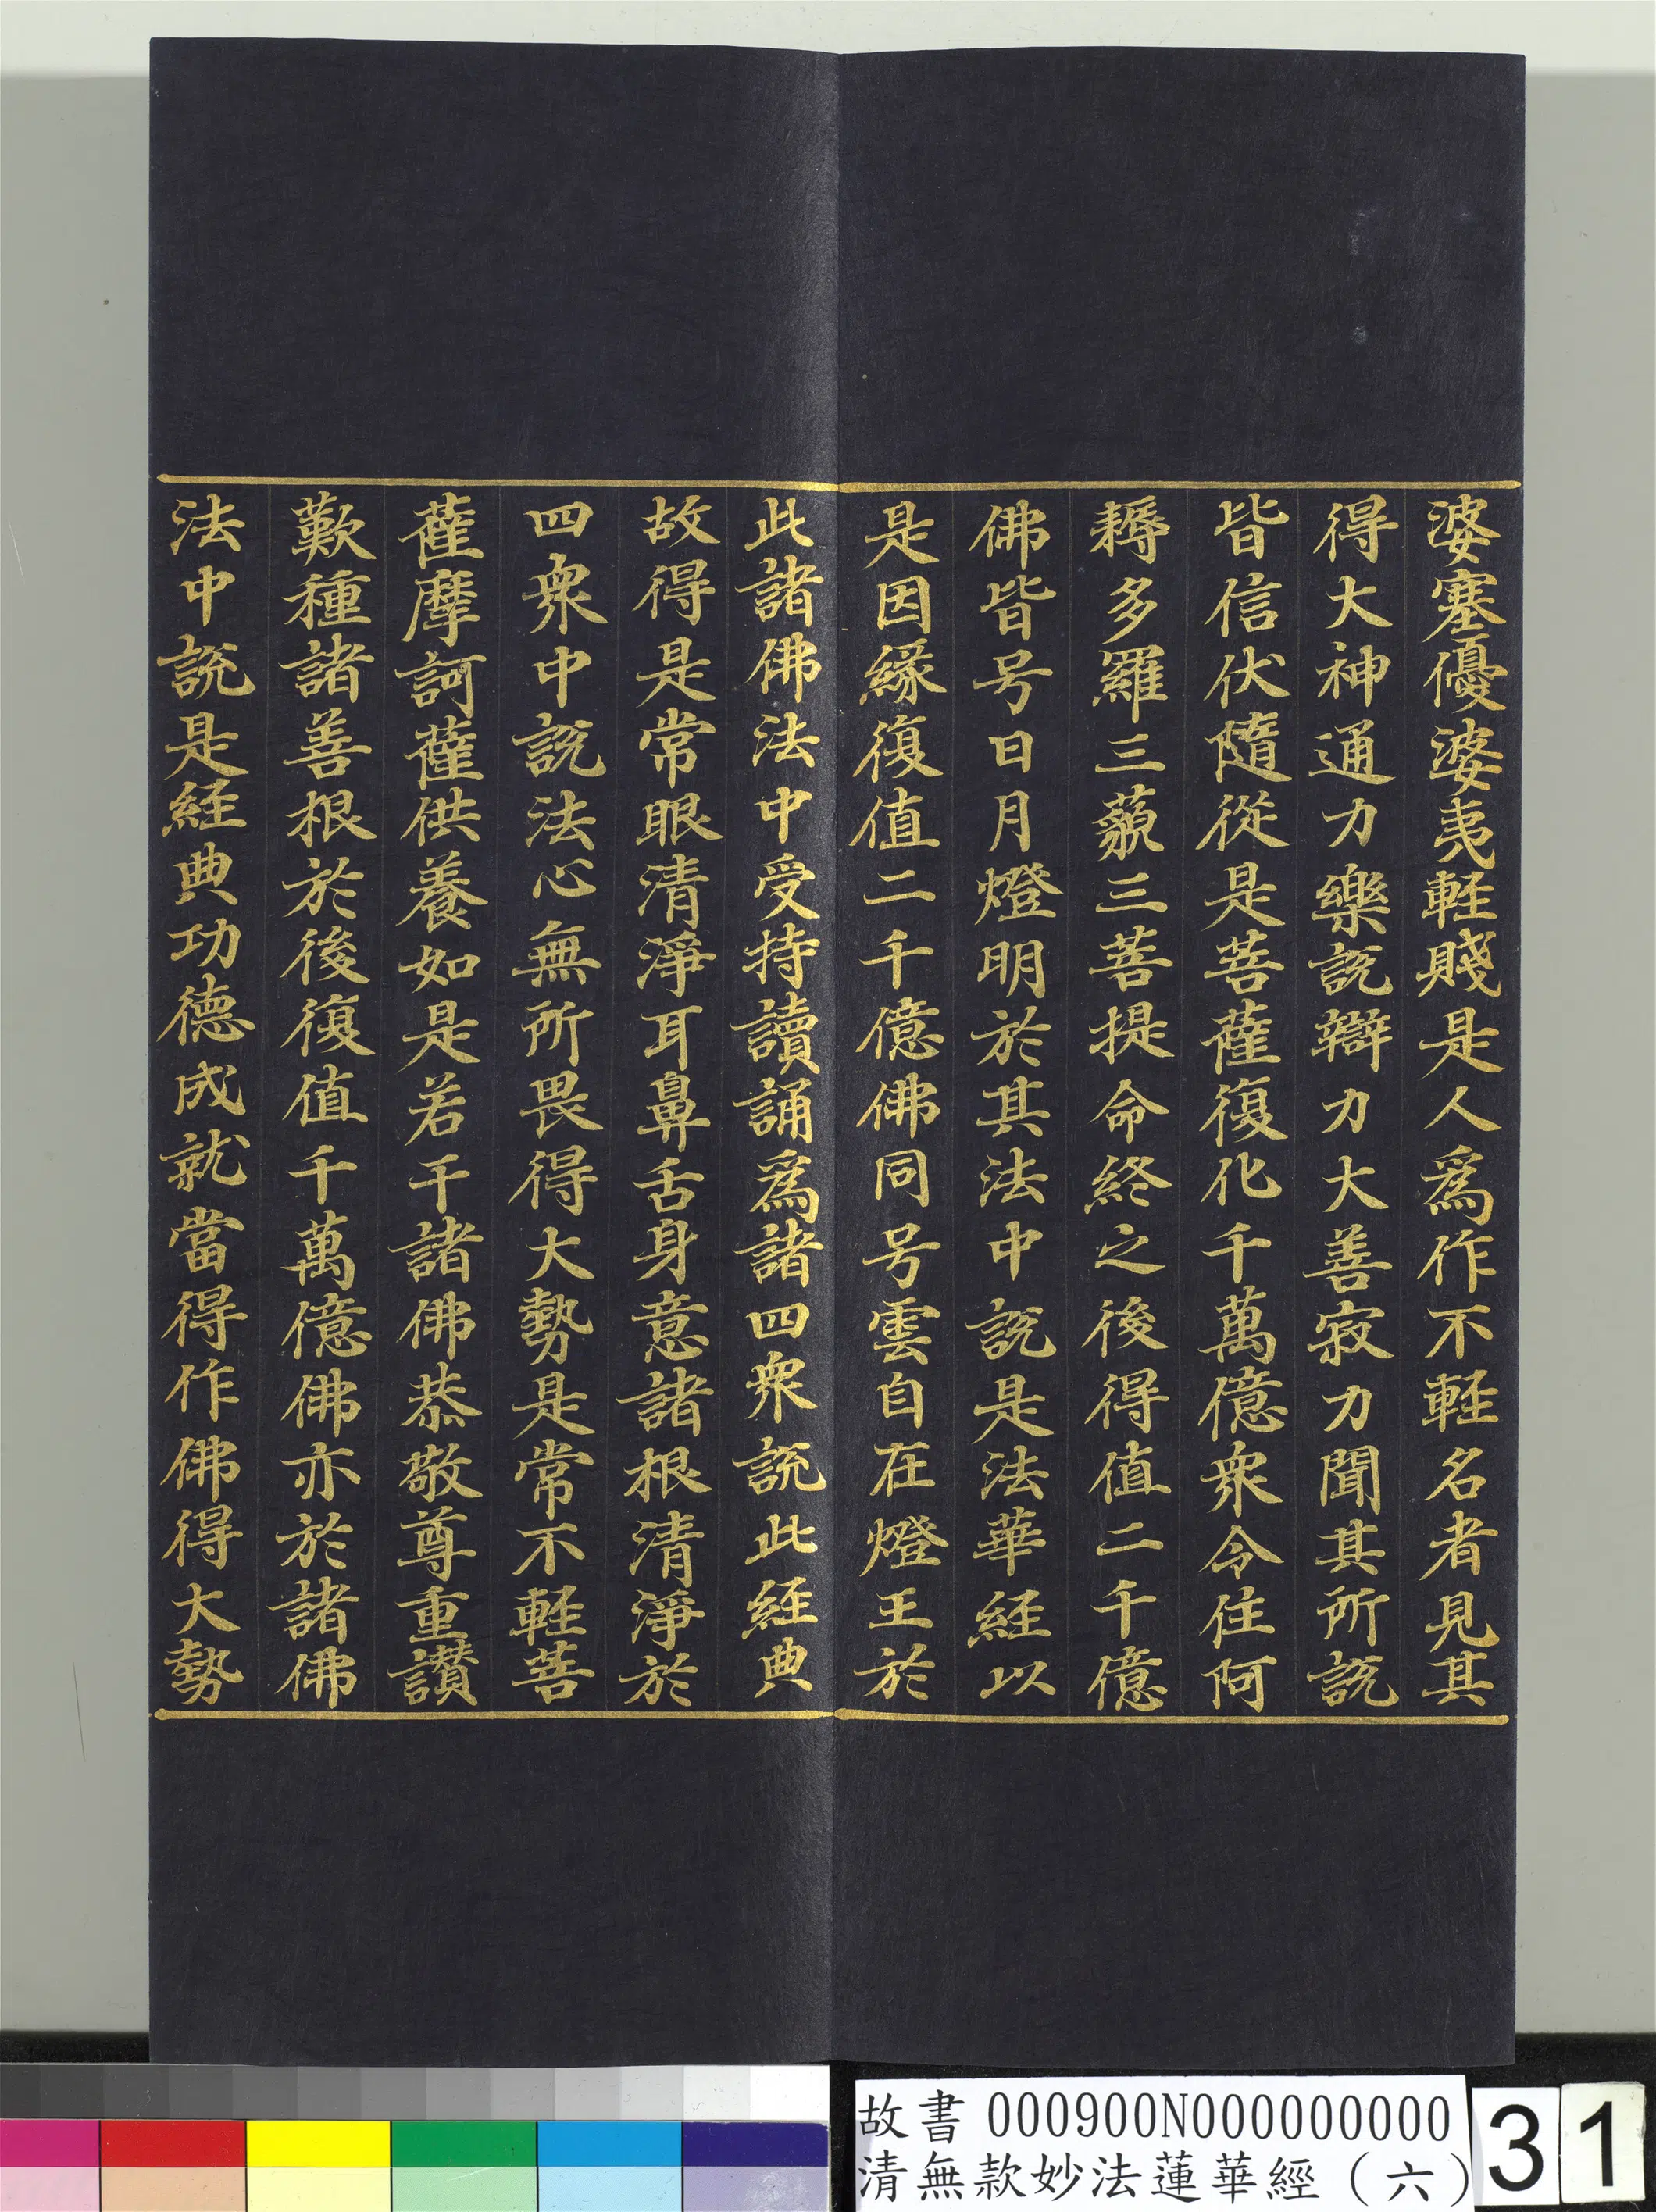 婆塞優婆夷軽賤是人爲作不軽名者見其
得大神通力樂說辯力大善寂力聞其所說
皆信伏隨從是菩薩復化千萬億衆令住阿
耨多羅三藐三菩提命終之後得值二千億
佛皆号日月燈明於其法中說是法華経以
是因緣復值二千億佛同号雲自在燈王於
此諸佛法中受持讀誦爲諸四衆說此経典
故得是常眼清淨耳鼻舌身意諸根清淨於
四衆中說法心無所畏得大勢是常不軽菩
薩摩訶薩供養如是若干諸佛恭敬尊重讃
歎種諸善根於後復值千萬億佛亦於諸佛
法中說是経典功德成就當得作佛得大勢
故書 000900N000000000
清無款妙法蓮華經（六）
31